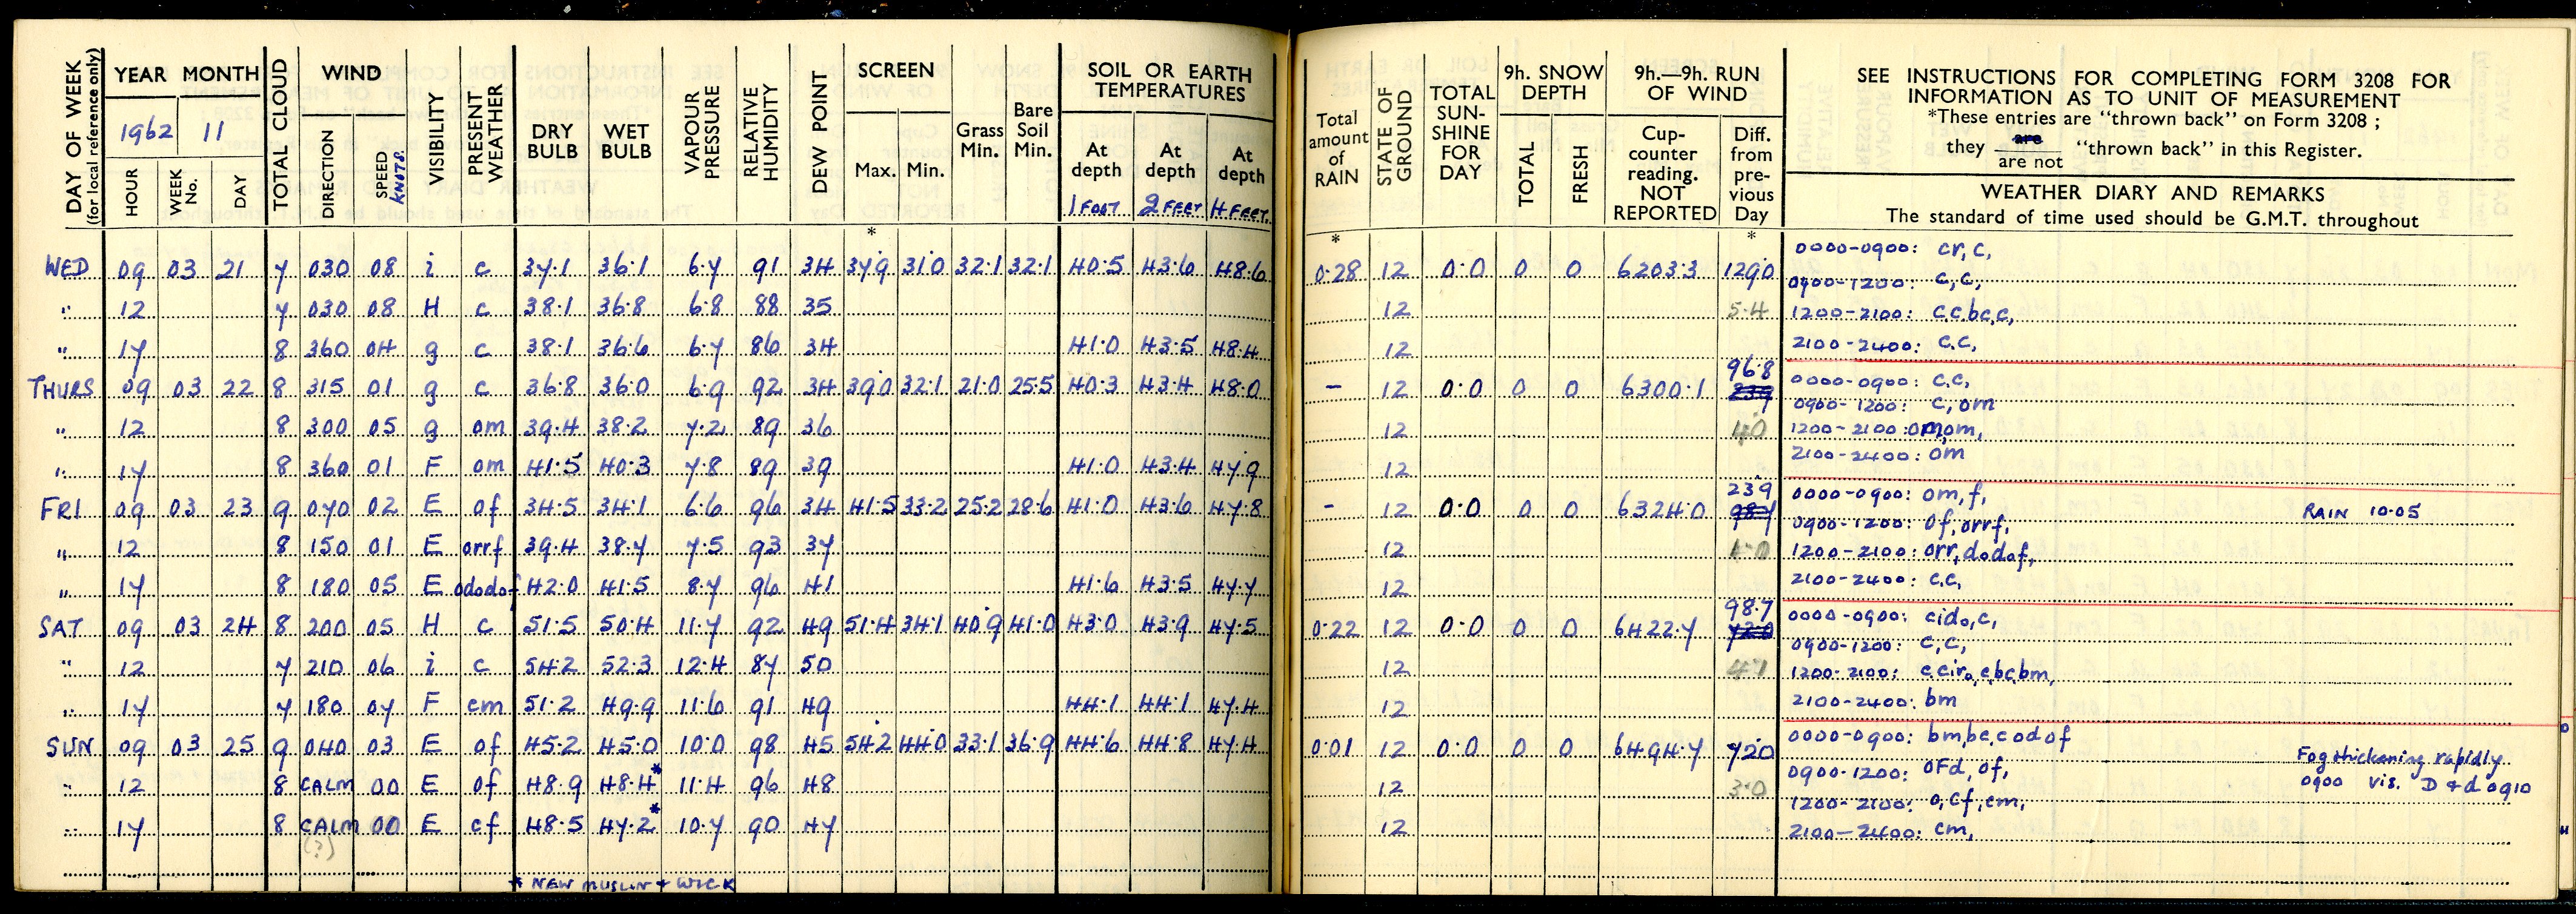 DAY OF WEEK
(for local reference only)
YEAR MONTH
1962 11
HOUR
WEEK No.
DAY
TOTAL CLOUD
WIND
DIRECTION
SPEED
KNOTS.
VISIBILITY
PRESENT WEATHER
DRY BULB
WET BULB
VAPOUR PRESSURE
RELATIVE HUMIDITY
DEW POINT
SCREEN
Max. Min.
Grass Min.
Bare Soil Min.
SOIL OR EARTH
TEMPERATURES
At depth At depth At depth
1 FOOT 2 FEET 4 FEET
*
WED 09 03 21 7 030 08 i c 37·1 36·1 6·7 91 34 37·9 31·0 32·1 32·1 40·5 43·6 48·6
" 12 7 030 08 H c 38·1 36·8 6·8 88 35
" 17 8 360 04 g c 38·1 36·6 6·7 86 34 41·0 43·5 48·4
THURS 09 03 22 8 315 01 g c 36·8 36·0 6·9 92 34 39·0 32·1 21·0 25·5 40·3 43·4 48·0
" 12 8 300 05 g om 39·4 38·2 7·2 89 36
" 17 8 360 01 F om 41·5 40·3 7·8 89 39 41·0 43·4 47·9
FRI 09 03 23 9 070 02 E of 34·5 34·1 6·6 96 34 41·5 33·2 25·2 28·6 41·0 43·6 47·8
" 12 8 150 01 E orrf 39·4 38·7 7·5 93 37
" 17 8 180 05 E ododof 42·0 41·5 8·7 96 41 41·6 43·5 47·7
SAT 09 03 24 8 200 05 H c 51·5 50·4 11·7 92 49 51·4 34·1 40·9 41·0 43·0 43·9 47·5
" 12 7 210 06 i c 54·2 52·3 12·4 87 50
" 17 7 180 07 F cm 51·2 49·9 11·6 91 49 44·1 44·1 47·4
SUN 09 03 25 9 040 03 E of 45·2 45·0 10·0 98 45 54·2 44·0 33·1 36·9 44·6 44·8 47·4
" 12 8 CALM 00 E of 48·9 48·4* 11·4 96 48
" 17 8 CALM 00 E cf 48·5 47·2* 10·7 90 47
(?)
* NEW MUSLIN + WICK
Total amount of RAIN
STATE OF GROUND
TOTAL SUN-SHINE FOR DAY
9h. SNOW DEPTH
TOTAL
FRESH
9h.—9h. RUN OF WIND
Cup-counter reading. NOT REPORTED
Diff. from pre-vious Day
SEE INSTRUCTIONS FOR COMPLETING FORM 3208 FOR
INFORMATION AS TO UNIT OF MEASUREMENT
*These entries are "thrown back" on Form 3208 ;
they are / are not "thrown back" in this Register.
WEATHER DIARY AND REMARKS
The standard of time used should be G.M.T. throughout
* *
0000-0900: cr, c,
0·28 12 0·0 0 0 6203·3 129·0
0900-1200: c, c,
12 5·4 1200-2100: c.c.bc,c,
12 2100-2400: c.c,
96·8
– 12 0·0 0 0 6300·1 0000-0900: c.c,
0900-1200: c, om
12 4·0 1200-2100: om,om,
12 2100-2400: om
23·9 0000-0900: om, f,
– 12 0·0 0 0 6324·0 RAIN 10·05
0900-1200: of, orrf,
12 1200-2100: orr, dodof,
12 2100-2400: c.c,
98·7 0000-0900: cido, c,
0·22 12 0·0 0 0 6422·7
0900-1200: c, c,
12 4·7 1200-2100: c ciro, c,bc,bm,
12 2100-2400: bm
0·01 12 0·0 0 0 6494·7 72·0 0000-0900: bm,bc,c odof
Fog thickening rapidly
0900-1200: oFd, of, 0900 vis. D + d 0910
12 3·0 1200-2100: o, cf, cm,
12 2100-2400: cm,